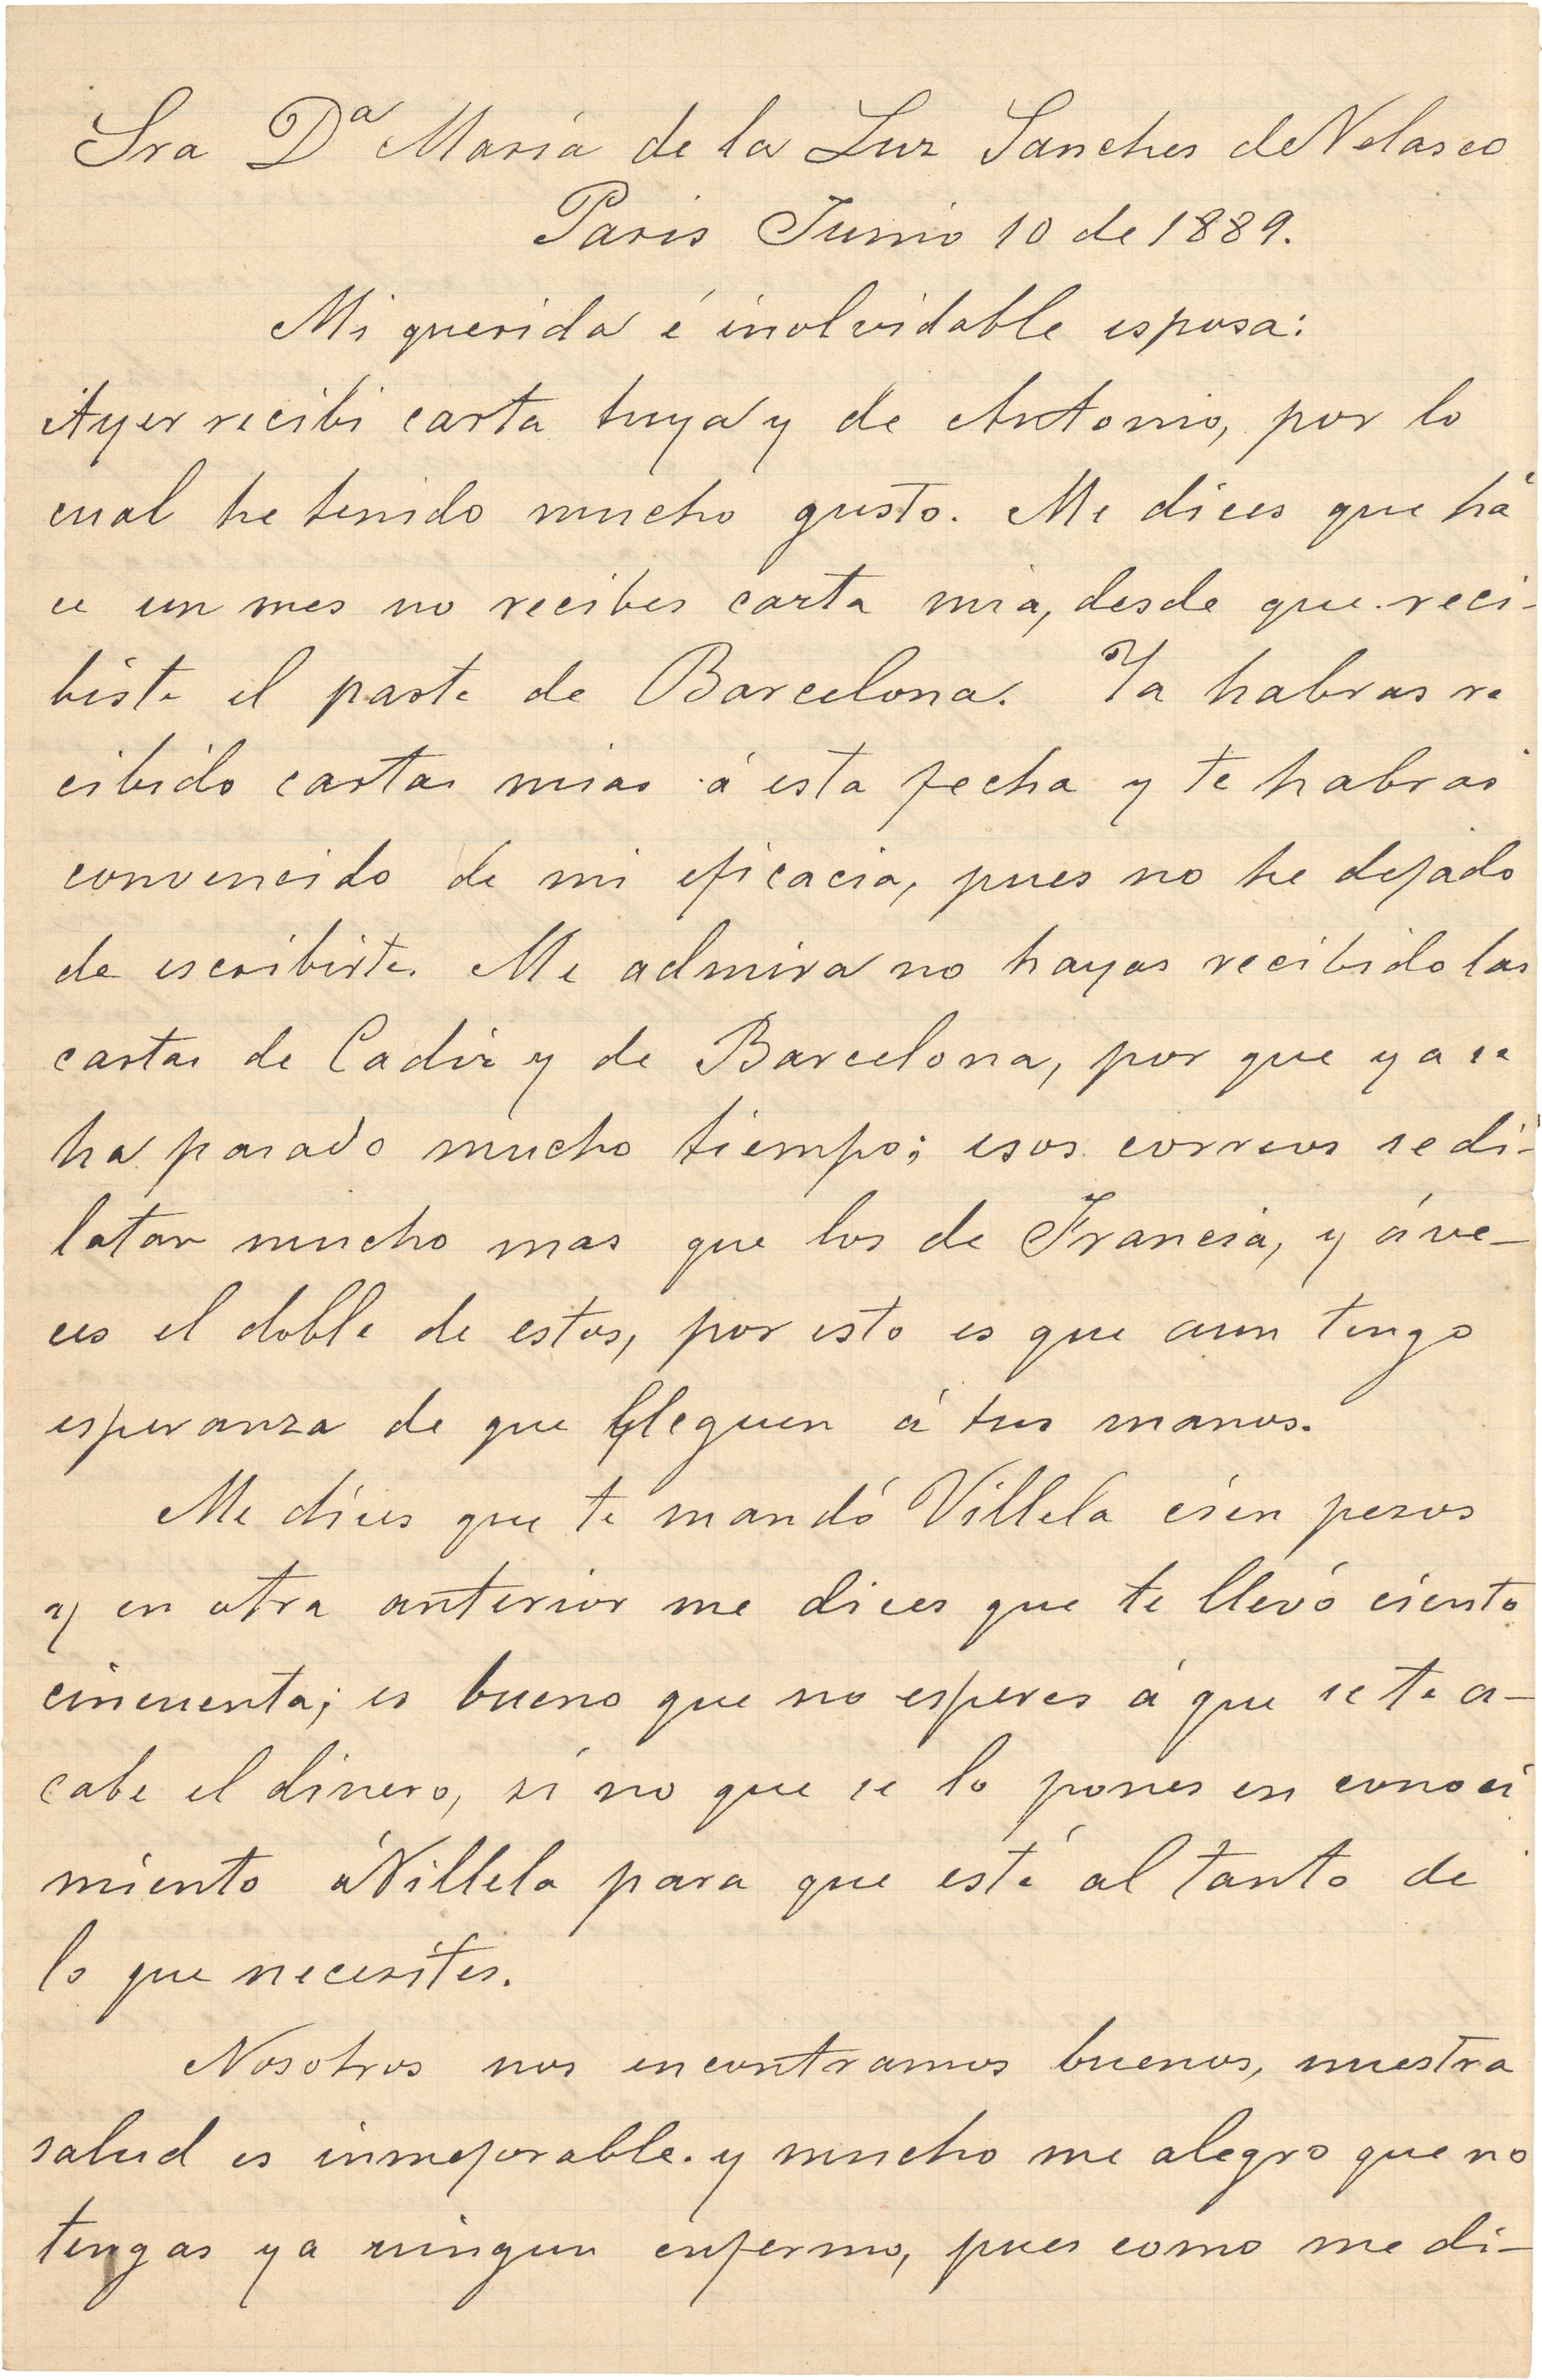 Sra Dª Maria de la Luz Sanches de Velasco
Paris Junio 10 de 1889.
Mi querida é inolvidable esposa:
Ayer recibi carta tuya y de Antonio, por lo
cual he tenido mucho gusto. Me dices que há
ce un mes no recibes carta mia, desde que reci-
biste el parte de Barcelona. Ya habras re
cibido cartas mias á esta fecha y te habras
convencido de mi eficacia, pues no he dejado
de escribirte. Me admira no hayas recibido las
cartas de Cadiz y de Barcelona, por que ya se
ha pasado mucho tiempo; esos correos se di-
latan mucho mas que los de Francia, y á ve-
ces el doble de estos, por esto es que aun tengo
esperanza de que lleguen á tus manos.
Me dices que te mandó Villela cien pesos
y en otra anterior me dices que te llevó ciento
cincuenta; es bueno que no esperes á que se te a-
cabe el dinero, si no que se lo pones en conoci
miento á Villela para que esté al tanto de
lo que necesites.
Nosotros nos encontramos buenos, nuestra
salud es inmejorable. y mucho me alegro que no
tengas ya ningun enfermo, pues como me di-